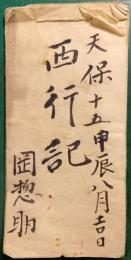 天保十五甲辰八月吉日
西行記
岡惣助